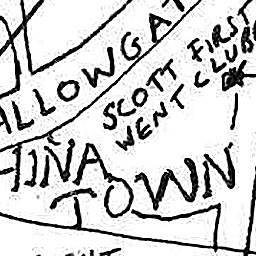 ALLOWGAT
SCOTT FIRST
WENT CLUBB
HINA
TOWN